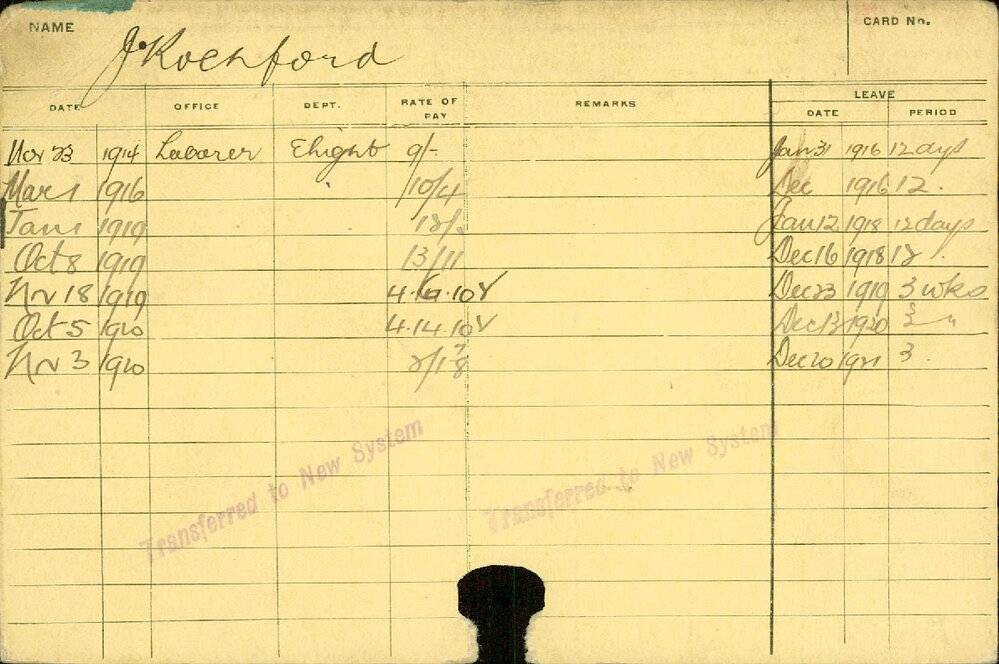 NAME J Rochford CARD No.
DATE OFFICE DEPT. RATE OF PAY REMARKS LEAVE
DATE PERIOD
Nov 23 1914 Laborer Elight 9/- Jan 31 1916 12 days
Mar 1 1916 10/4 Dec 1916 12.
Jan 1 1919 Jan 12 1918 12 days
Oct 8 1919 13/11 Dec 16 1918 12.
Nv 18 1919 Dec 23 1919 3 wks
Oct 5 1920 4.14.10 Dec 13 1920 "
Nv 3 1920 Dec 20 1921 3.
Transferred to New System
Transferred to New System